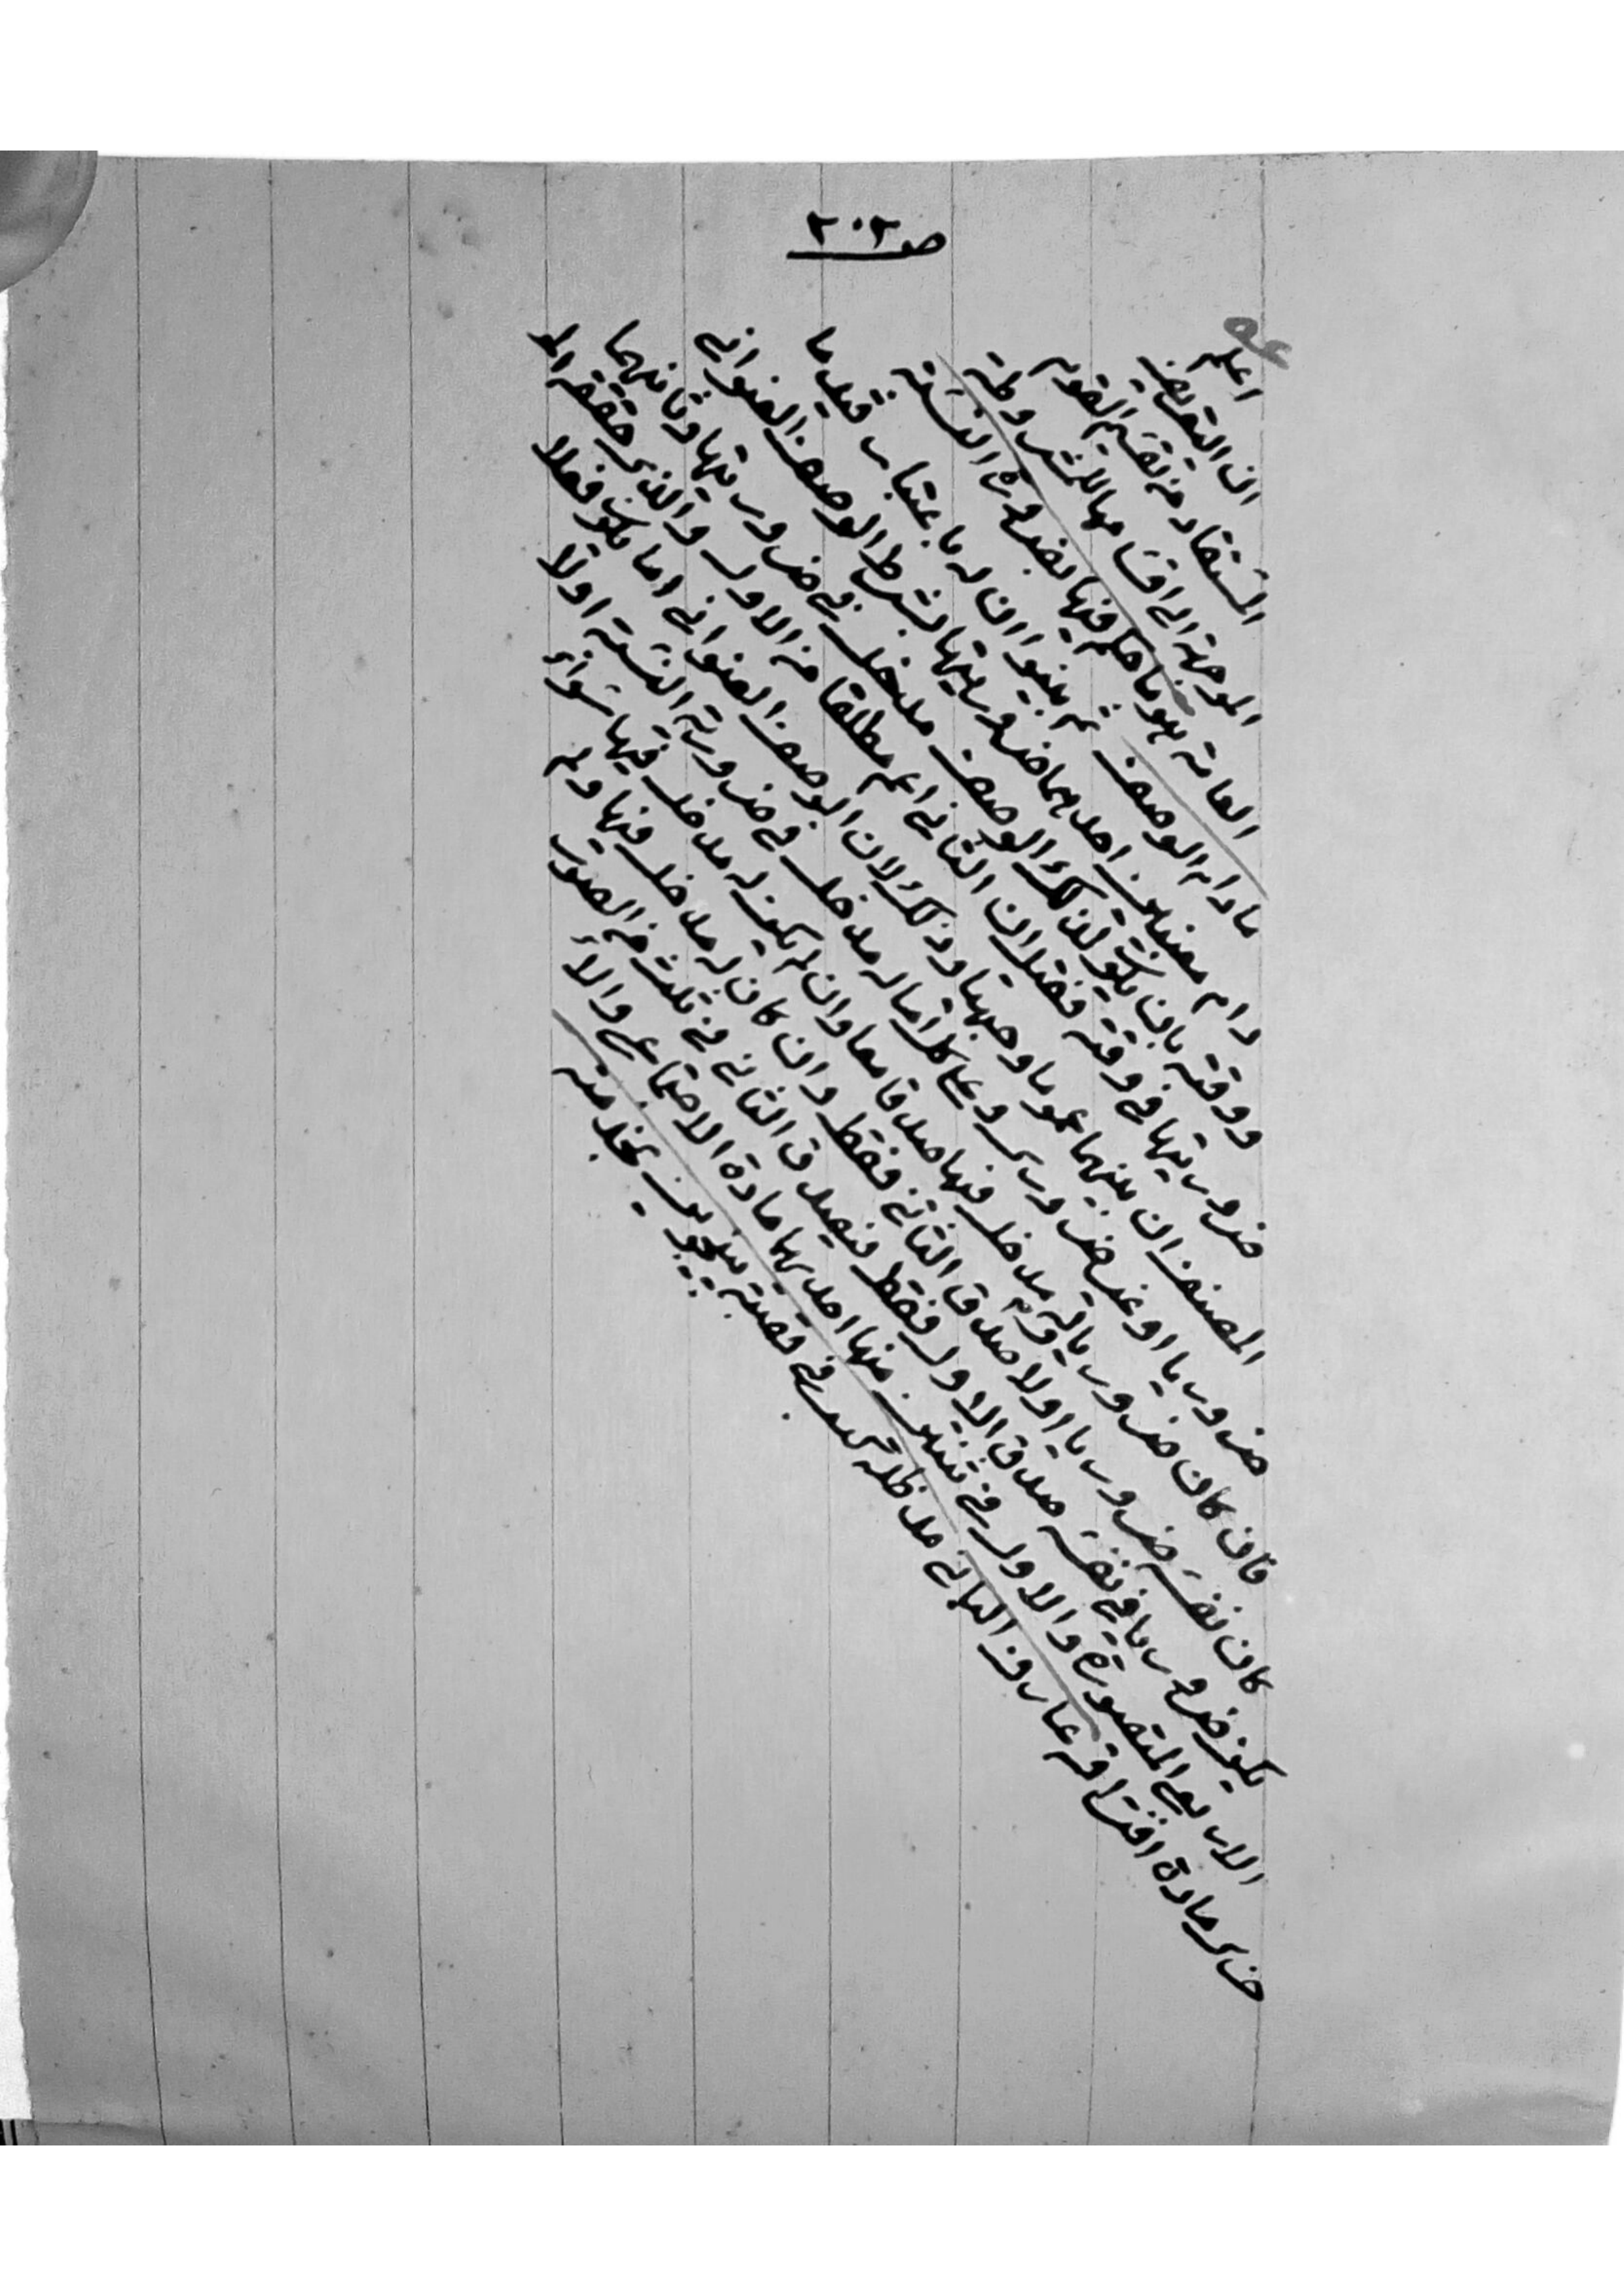 صـ ٢٠٢
اعلم
ان التعريف
المستفاد من تقسيم القوم
الموجهة الى اقسامها للمشروطة
العامة هو ما حكم فيها بضرورة النسبة
ما دام الوصف ثم بينوا ان له باعتبار قيد ما
دام معنيين احدهما ضروريتها بشرط الوصف العنواني
ووقته بان يكون لذلك الوصف مدخل في ضروريتها وثانيهما
ضروريتها في وقته فقيل ان الثاني اعم مطلقا من الاول والذي حققه المو
المصنف ان بينهما عموما وجهيا وذلك لان الوصف العنواني اما يكون فعلا
ضروريا او غير ضروري وعلى كل اما له مدخل في ضرورية النسبة اولا
فان كان ضروريا وله مدخل فيها صدقا معا وان لم يكن له مدخل فيها سواء
كان نفسه ضروريا اولا صدق الثاني فقط وان كان له مدخل فيها ولم
يكن ضروريا في نفسه صدق الاول فقط فيصدق الثاني في ثلث من الصور
الاربع المتصورة والاول في ثنتين منها احديهما مادة الاجتماع والا
خرى مادة افتراقه عارف الباني مد ظله كدر في قصبة بخدمته